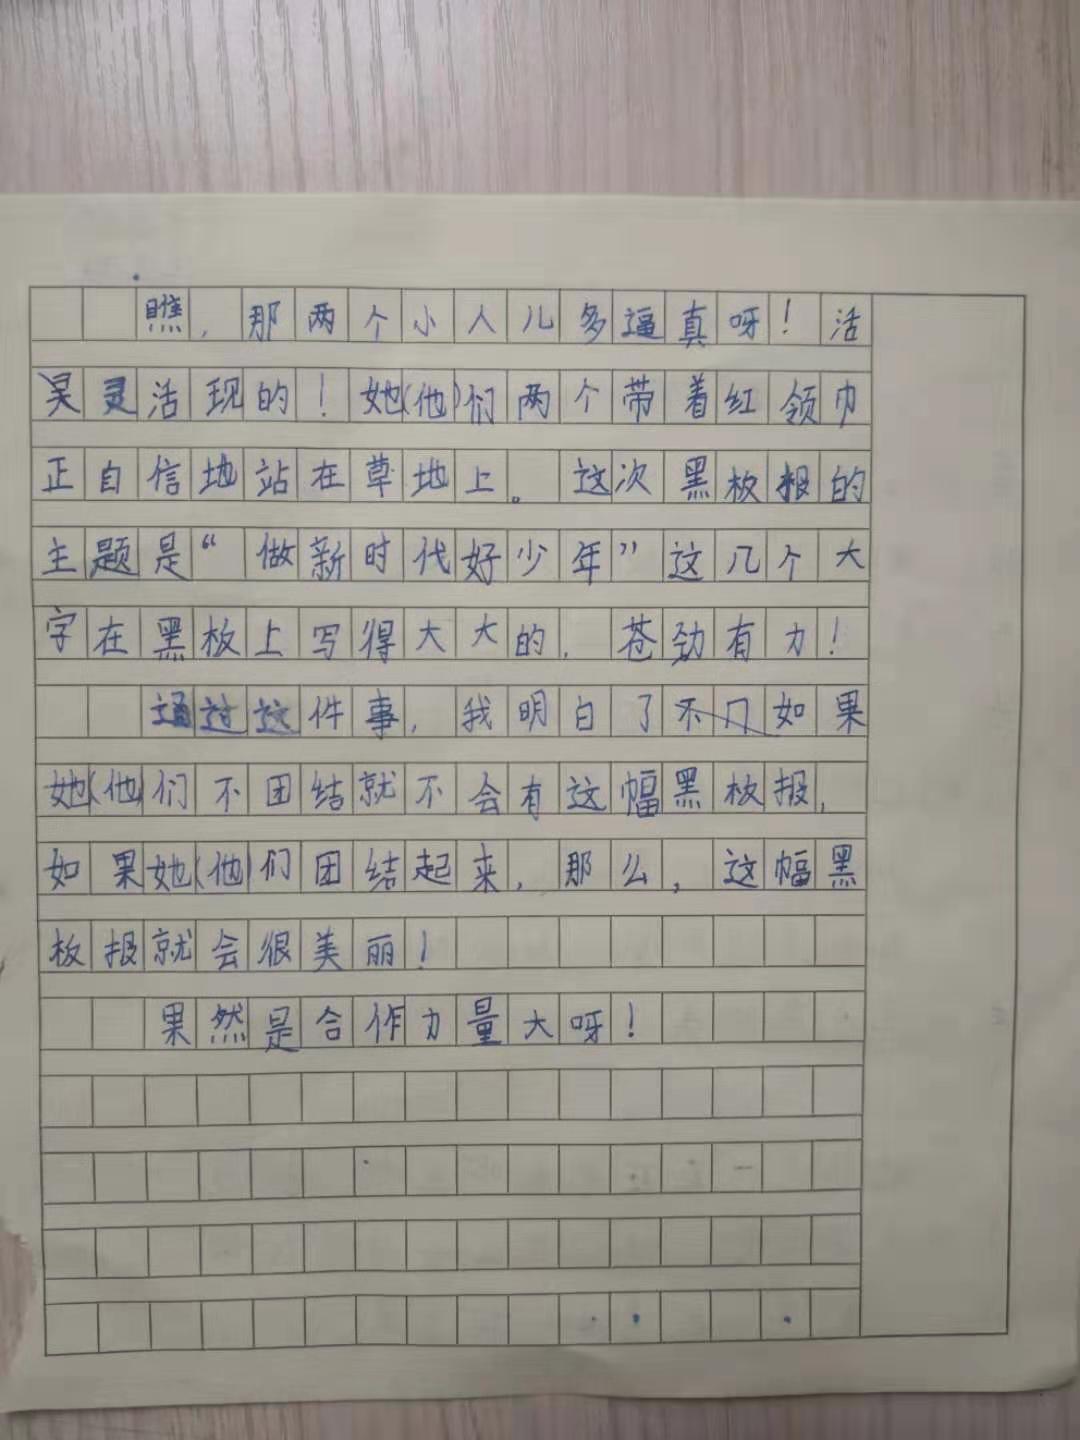 瞧，那两个小人儿多逼真呀！活
灵活现的！她(他)们两个带着红领巾
正自信地站在草地上。这次黑板报的
主题是“做新时代好少年”这几个大
字在黑板上写得大大的，苍劲有力！
通过这件事，我明白了如果
她(他)们不团结就不会有这幅黑板报，
如果她(他)们团结起来，那么，这幅黑
板报就会很美丽！
果然是合作力量大呀！